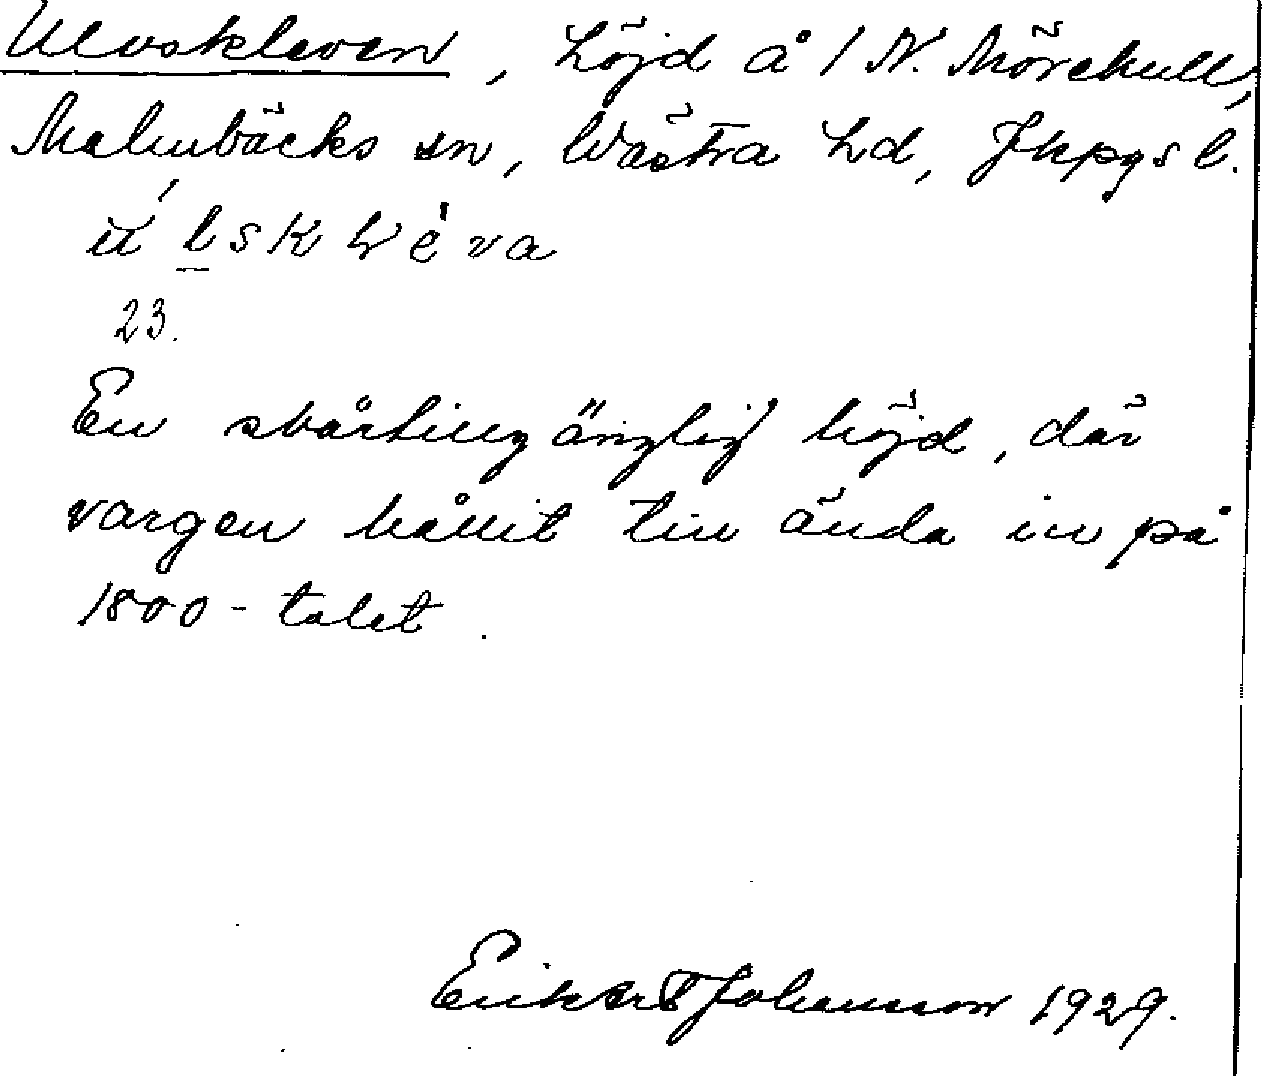 Ulvskleven, höjd å 1 N. Mörekull,
Malmbäcks sn, Västra hd, Jkpgs l.
23.
En svårtillgänglig höjd, där
vargen hållit till ända in på
1800-talet.
Johansson 1929.